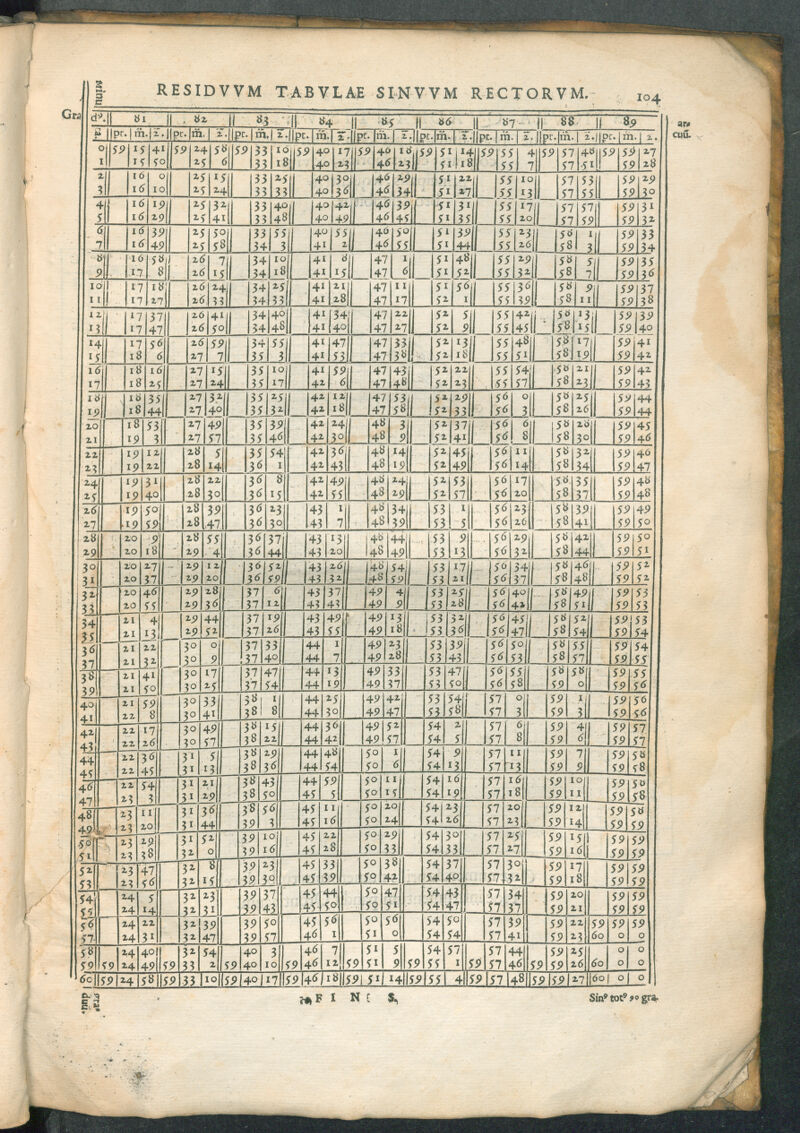 RESIDVVM TABVLAE SINVVM RECTORVM. 104
Gra dꝰ. 81 82 83 84 85 86 87 88 89 arcuũ.
pt. m̃. z. pt. m̃. z. pt. m. z. pt. m̃. z. pt. m. z. pt. m. z. pt. m. z. pt. m. z. pt. m. z.
0 59 15 41 59 24 58 59 33 10 59 40 17 59 46 18 59 51 14 59 55 4 59 57 48 59 59 27
1 15 50 25 6 33 18 40 23 46 23 51 18 55 7 57 51 59 28
2 16 0 25 15 33 25 40 30 46 29 51 22 55 10 57 53 59 29
3 16 10 25 24 33 33 40 36 46 34 51 27 55 13 57 55 59 30
4 16 19 25 32 33 40 40 42 46 39 51 31 55 17 57 57 59 31
5 16 29 25 41 33 48 40 49 46 45 51 35 55 20 57 59 59 32
6 16 39 25 50 33 55 40 55 46 50 51 39 55 23 58 1 59 33
7 16 49 25 58 34 3 41 2 46 55 51 44 55 26 58 3 59 34
8 16 58 26 7 34 10 41 8 47 1 51 48 55 29 58 5 59 35
9 17 8 26 15 34 18 41 15 47 6 51 52 55 32 58 7 59 36
10 17 18 26 24 34 25 41 21 47 11 51 56 55 36 58 9 59 37
11 17 27 26 33 34 33 41 28 47 17 52 1 55 39 58 11 59 38
12 17 37 26 41 34 40 41 34 47 22 52 5 55 42 58 13 59 39
13 17 47 26 50 34 48 41 40 47 27 52 9 55 45 58 15 59 40
14 17 56 26 59 34 55 41 47 47 33 52 13 55 48 58 17 59 41
15 18 6 27 7 35 3 41 53 47 38 52 18 55 51 58 19 59 42
16 18 16 27 15 35 10 41 59 47 43 52 22 55 54 58 21 59 42
17 18 25 27 24 35 17 42 6 47 48 52 23 55 57 58 23 59 43
18 18 35 27 32 35 25 42 12 47 53 52 29 56 0 58 25 59 44
19 18 44 27 40 35 32 42 18 47 58 52 33 56 3 58 26 59 44
20 18 53 27 49 35 39 42 24 48 3 52 37 56 6 58 28 59 45
21 19 3 27 57 35 46 42 30 48 9 52 41 56 8 58 30 59 46
22 19 12 28 5 35 54 42 36 48 14 52 45 56 11 58 32 59 46
23 19 22 28 14 36 1 42 43 48 19 52 49 56 14 58 34 59 47
24 19 31 28 22 36 8 42 49 48 24 52 53 56 17 58 35 59 48
25 19 40 28 30 36 15 42 55 48 29 52 57 56 20 58 37 59 48
26 19 50 28 39 36 23 43 1 48 34 53 1 56 23 58 39 59 49
27 19 59 28 47 36 30 43 7 48 39 53 5 56 26 58 41 59 50
28 20 9 28 55 36 37 43 13 48 44 53 9 56 29 58 42 59 50
29 20 18 29 4 36 44 43 20 48 49 53 13 56 32 58 44 59 51
30 20 27 29 12 36 52 43 26 48 54 53 17 56 34 58 46 59 52
31 20 37 29 20 36 59 43 32 48 59 53 21 56 37 58 48 59 52
32 20 46 29 28 37 6 43 37 49 4 53 25 56 40 58 49 59 53
33 20 55 29 36 37 12 43 43 49 9 53 28 56 42 58 51 59 53
34 21 4 29 44 37 19 43 49 49 13 53 32 56 45 58 52 59 53
35 21 13 29 52 37 26 43 55 49 18 53 36 56 47 58 54 59 54
36 21 22 30 0 37 33 44 1 49 23 53 39 56 50 58 55 59 54
37 21 32 30 9 37 40 44 7 49 28 53 43 56 53 58 57 59 55
38 21 41 30 17 37 47 44 13 49 33 53 47 56 55 58 58 59 55
39 21 50 30 25 37 54 44 19 49 37 53 50 56 58 59 0 59 56
40 21 59 30 33 38 1 44 25 49 42 53 54 57 0 59 1 59 56
41 22 8 30 41 38 8 44 30 49 47 53 58 57 3 59 3 59 56
42 22 17 30 49 38 15 44 36 49 52 54 2 57 6 59 4 59 57
43 22 26 30 57 38 22 44 42 49 57 54 5 57 8 59 6 59 57
44 22 36 31 5 38 29 44 48 50 1 54 9 57 11 59 7 59 58
45 22 45 31 13 38 36 44 54 50 6 54 13 57 13 59 9 59 58
46 22 54 31 21 38 43 44 59 50 11 54 16 57 16 59 10 59 58
47 23 3 31 29 38 50 45 5 50 15 54 19 57 18 59 11 59 58
48 23 11 31 36 38 56 45 11 50 20 54 23 57 20 59 12 59 58
49 23 20 31 44 39 3 45 16 50 24 54 26 57 23 59 14 59 59
50 23 29 31 52 39 10 45 22 50 29 54 30 57 25 59 15 59 59
51 23 38 32 0 39 16 45 28 50 33 54 33 57 27 59 16 59 59
52 23 47 32 8 39 23 45 33 50 38 54 37 57 30 59 17 59 59
53 23 56 32 15 39 30 45 39 50 42 54 40 57 32 59 18 59 59
54 24 5 32 23 39 37 45 44 50 47 54 43 57 34 59 20 59 59
55 24 14 32 31 39 43 45 50 50 51 54 47 57 37 59 21 59 59
56 24 22 32 39 39 50 45 56 50 56 54 50 57 39 59 22 59 59 59
57 24 31 32 47 39 57 46 1 51 0 54 54 57 41 59 23 60 0 0
58 24 40 32 54 40 3 46 7 51 5 54 57 57 44 59 25 0 0
59 59 24 49 59 33 2 59 40 10 59 46 12 59 51 9 59 55 1 59 57 46 59 59 26 60 0 0
60 59 24 58 59 33 10 59 40 17 59 46 18 59 51 14 59 55 4 59 57 48 59 59 27 60 0 0
F I N I S. Sinꝰ totꝰ 90 gra.